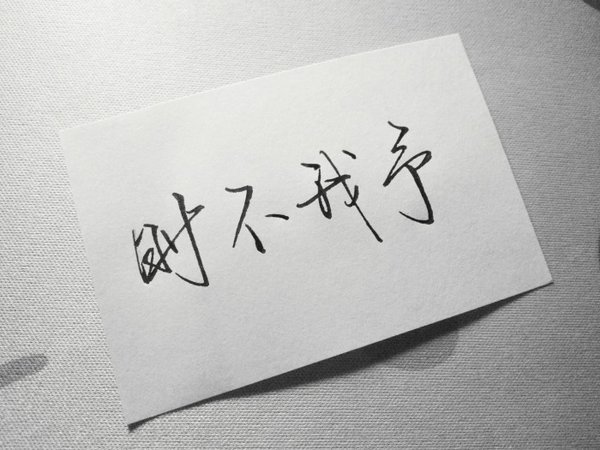 时不我予